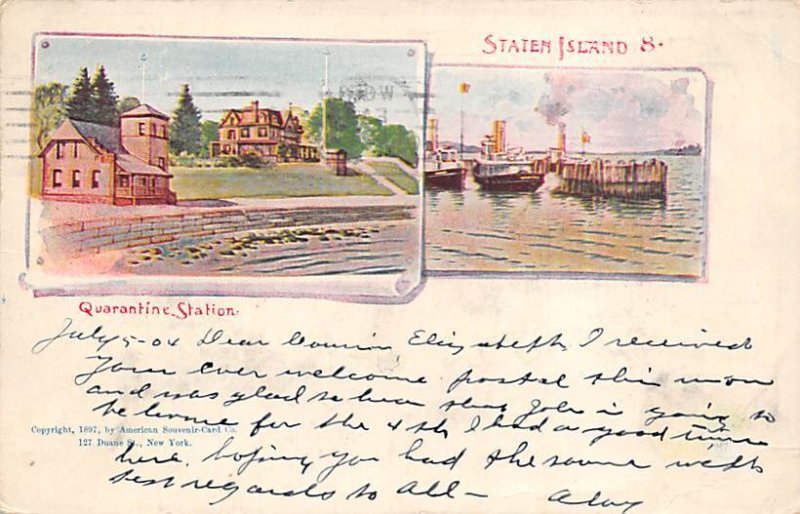 STATEN ISLAND 8.
Quarantine Station.
July 5-04 Dear Cousin Elizabeth, I received
your ever welcome postal this morn
and was glad to hear that is going to
be home for the 4th, I had a good time
here, hoping you had the same with
best regards to All -
Copyright, 1897, by American Souvenir-Card Co.
127 Duane St., New York.